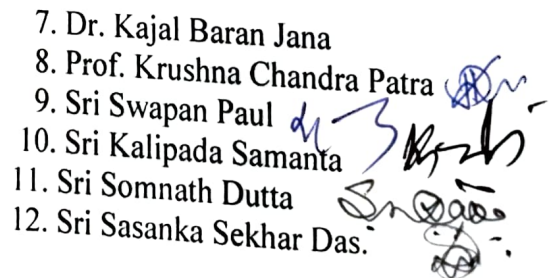 7. Dr. Kajal Baran Jana
8. Prof. Krushna Chandra Patra
9. Sri Swapan Paul
10. Sri Kalipada Samanta
11. Sri Somnath Dutta
12. Sri Sasanka Sekhar Das.